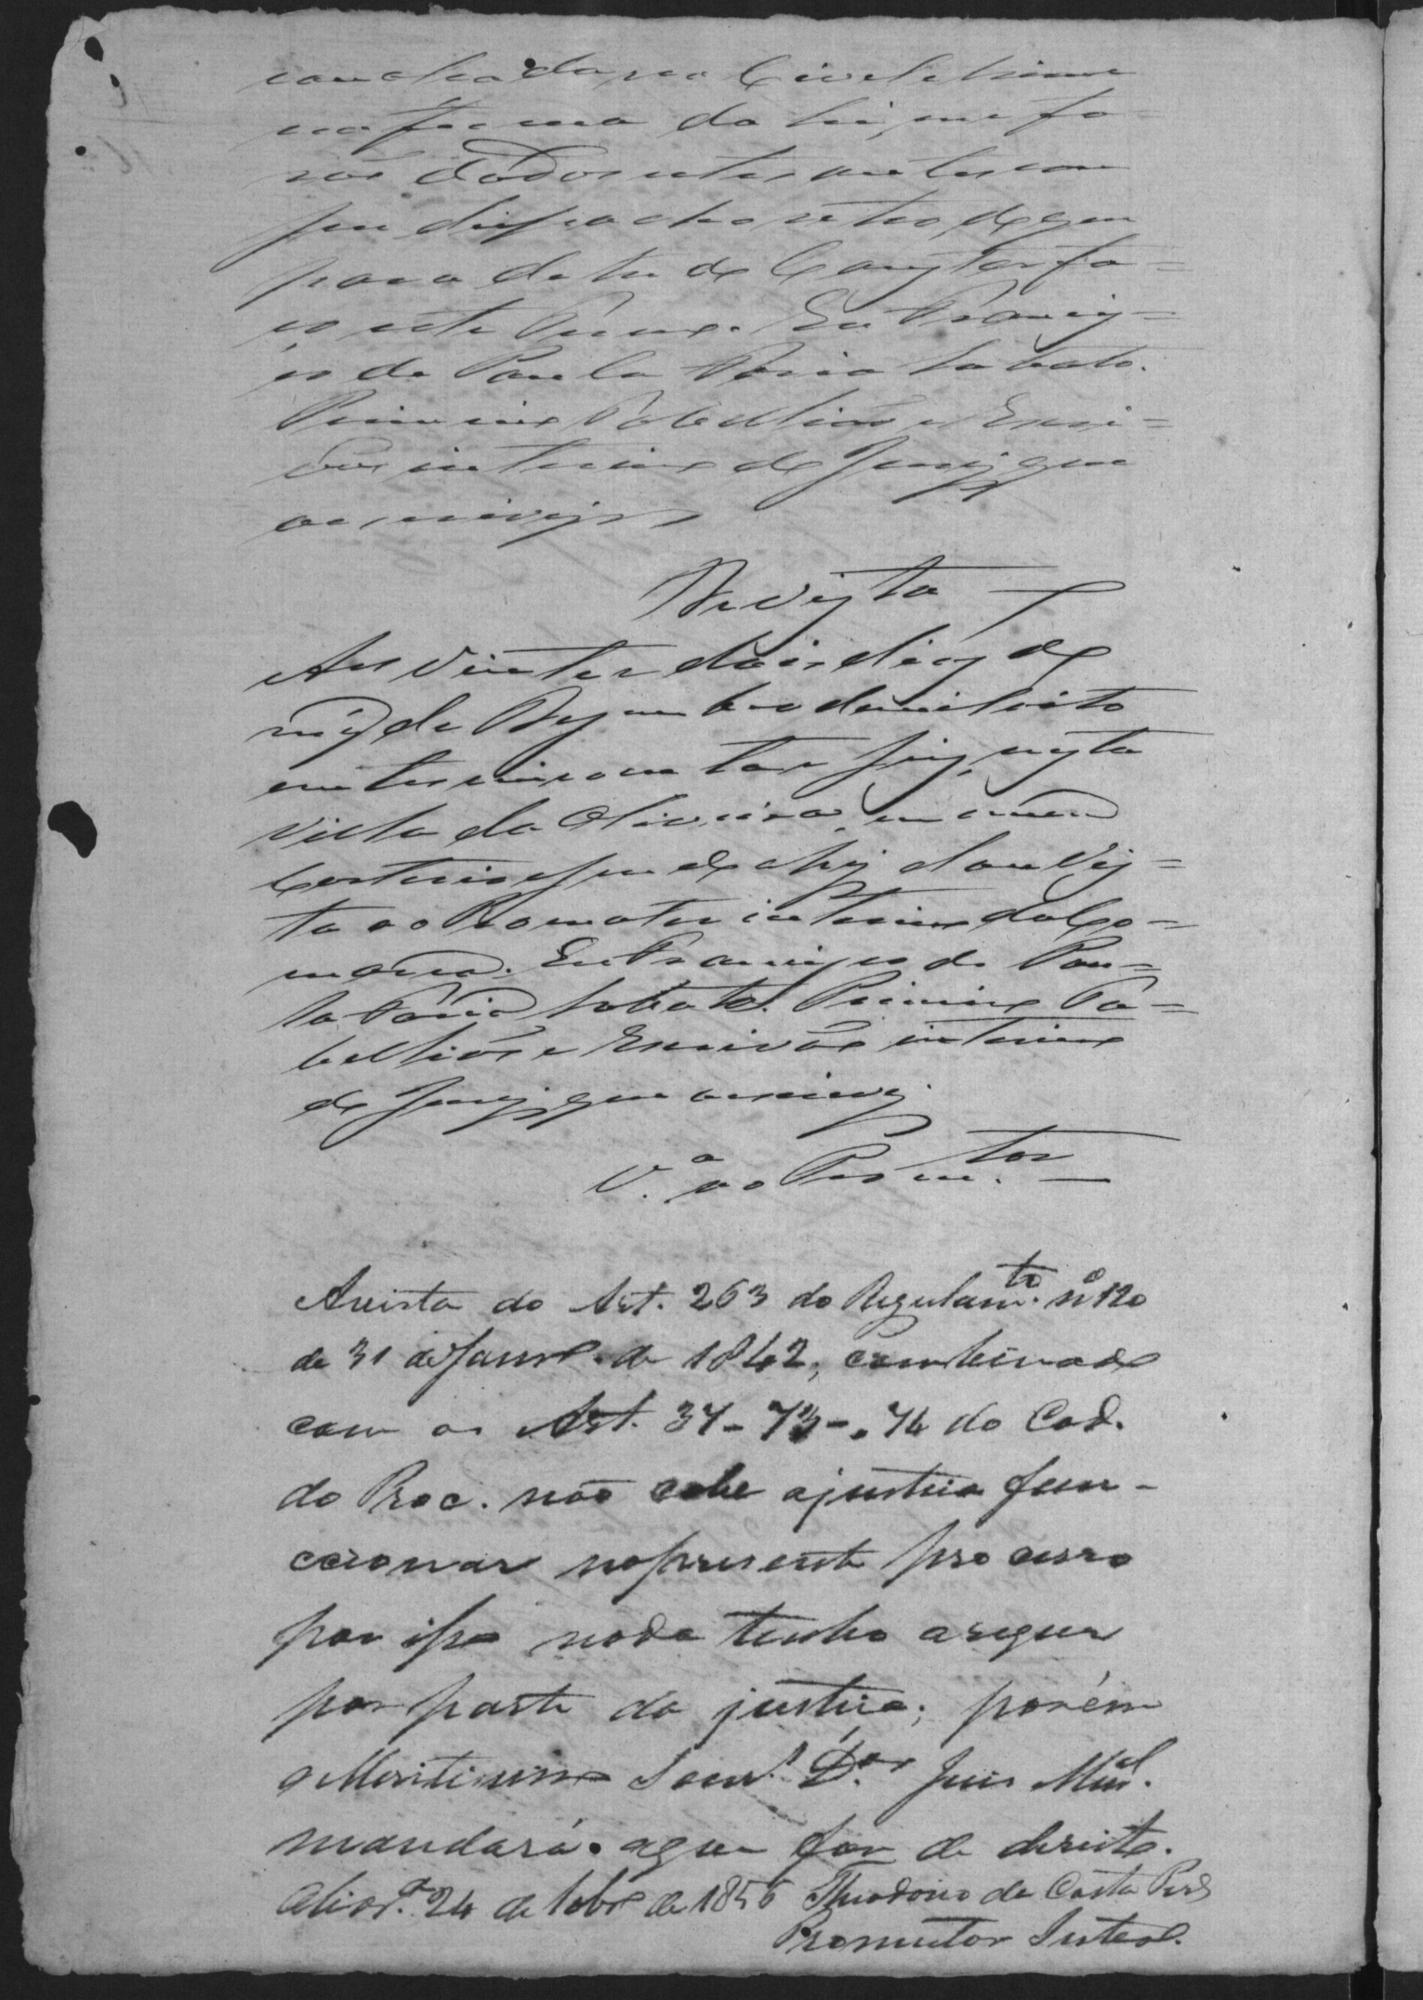 na forma da lei, me fo-
rão dados estes autos com
seu despacho retro de que
para datar de Constar fa-
ço este termo. Eu Francis-
co de Paula Faria Lobato.
Primeiro Tabellião e Escri-
vão interino do Jury que
o escrevy
De vista
Aos vinte e dois dias do
mez de Dezembro de mil oito
centos cincoenta e seis, nesta
Villa da Oliveira, em meu
Cartorio sendo ahy dou Vis-
ta ao Promotor interino da Co-
marca. Eu Francisco de Pau-
la Faria Lobato. Primeiro Ta-
bellião e Escrivão interino
do Jury que o escrevy.
V.ª ao Prom.tor
Avista do Art. 263 do Regulam.to nº 120
de 31 de Janr.º de 1842, combinado
com os Art. 37-73-74 do Cod.
do Proc. não cabe a justiça fun-
ccionar no presente processo
por isso nada tenho a requerer
por parte da justiça; porém
o Meritissimo Senr. D.or Juis Mun.al
mandará o que for de direito.
Olivr.ª 24 de 1856 Theodoro da Costa
Promutor Inter.º